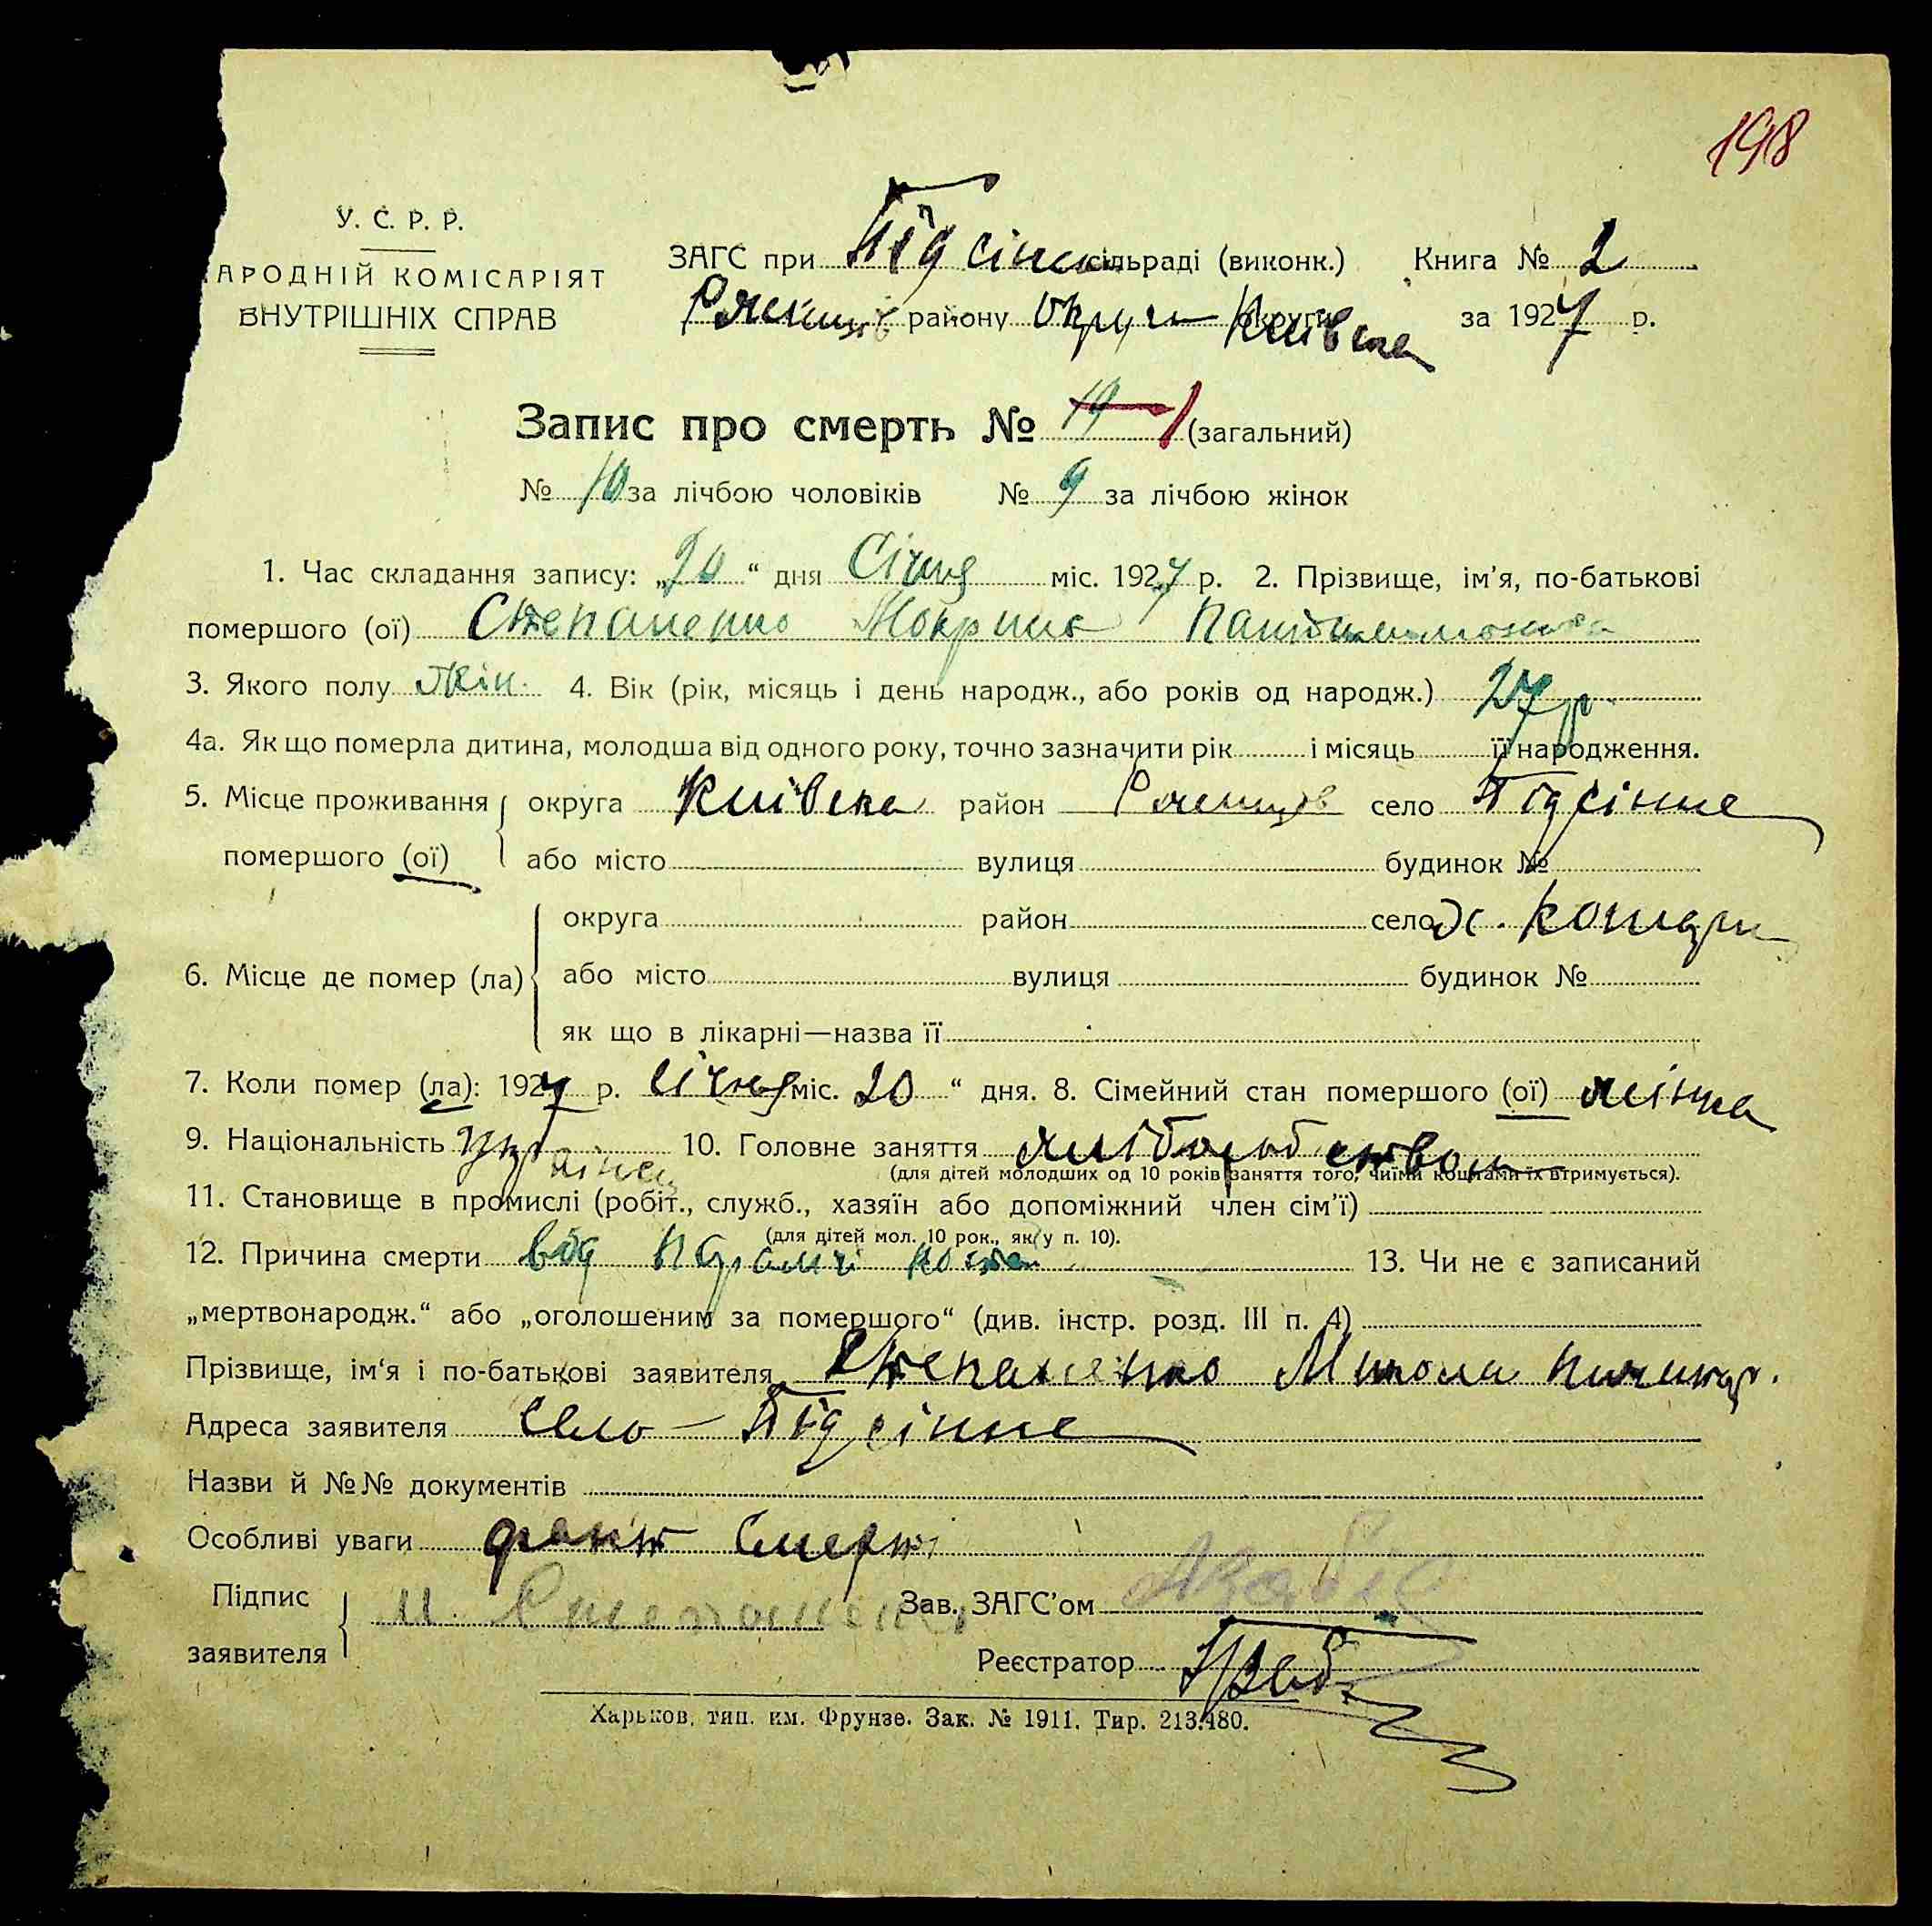 198
У. С. Р. Р.
АРОДНІЙ КОМІСАРІЯТ
ВНУТРІШНІХ СПРАВ
ЗАГС при Підсінн сільраді (виконк.) Книга № 2
району Округи округи Київська за 1927 р.
Запис про смерть № 19 1 (загальний)
№ 10 за лічбою чоловіків № 9 за лічбою жінок
1. Час складання запису: „20“ дня Січня міс. 1927 р. 2. Прізвище, ім'я, по-батькові
помершого (ої) Степаненко Мокрина
3. Якого полу жін. 4. Вік (рік, місяць і день народж., або років од народж.) 27 р.
4а. Як що померла дитина, молодша від одного року, точно зазначити рік і місяць її народження.
5. Місце проживання округа Київська район село Підсінне
помершого (ої) або місто вулиця будинок №
округа район село х. Кошари
6. Місце де помер (ла) або місто вулиця будинок №
як що в лікарні—назва її
7. Коли помер (ла): 1927 р. Січня міс. 20 “ дня. 8. Сімейний стан помершого (ої) жінка
9. Національність Українец 10. Головне заняття
(для дітей молодших од 10 років заняття того, чиїми коштами їх втримується).
11. Становище в промислі (робіт., служб., хазяїн або допоміжний член сім'ї)
(для дітей мол. 10 рок., як у п. 10).
12. Причина смерти від 13. Чи не є записаний
„мертвонародж.“ або „оголошеним за помершого“ (див. інстр. розд. III п. 4)
Прізвище, ім'я і по-батькові заявителя Степаненко Микола
Адреса заявителя село Підсінне
Назви й №№ документів
Особливі уваги факт смерті
Підпис заявителя М. Степаненко Зав. ЗАГС'ом
Реєстратор
Харьков, тип. им. Фрунзе. Зак. № 1911. Тир. 213.480.